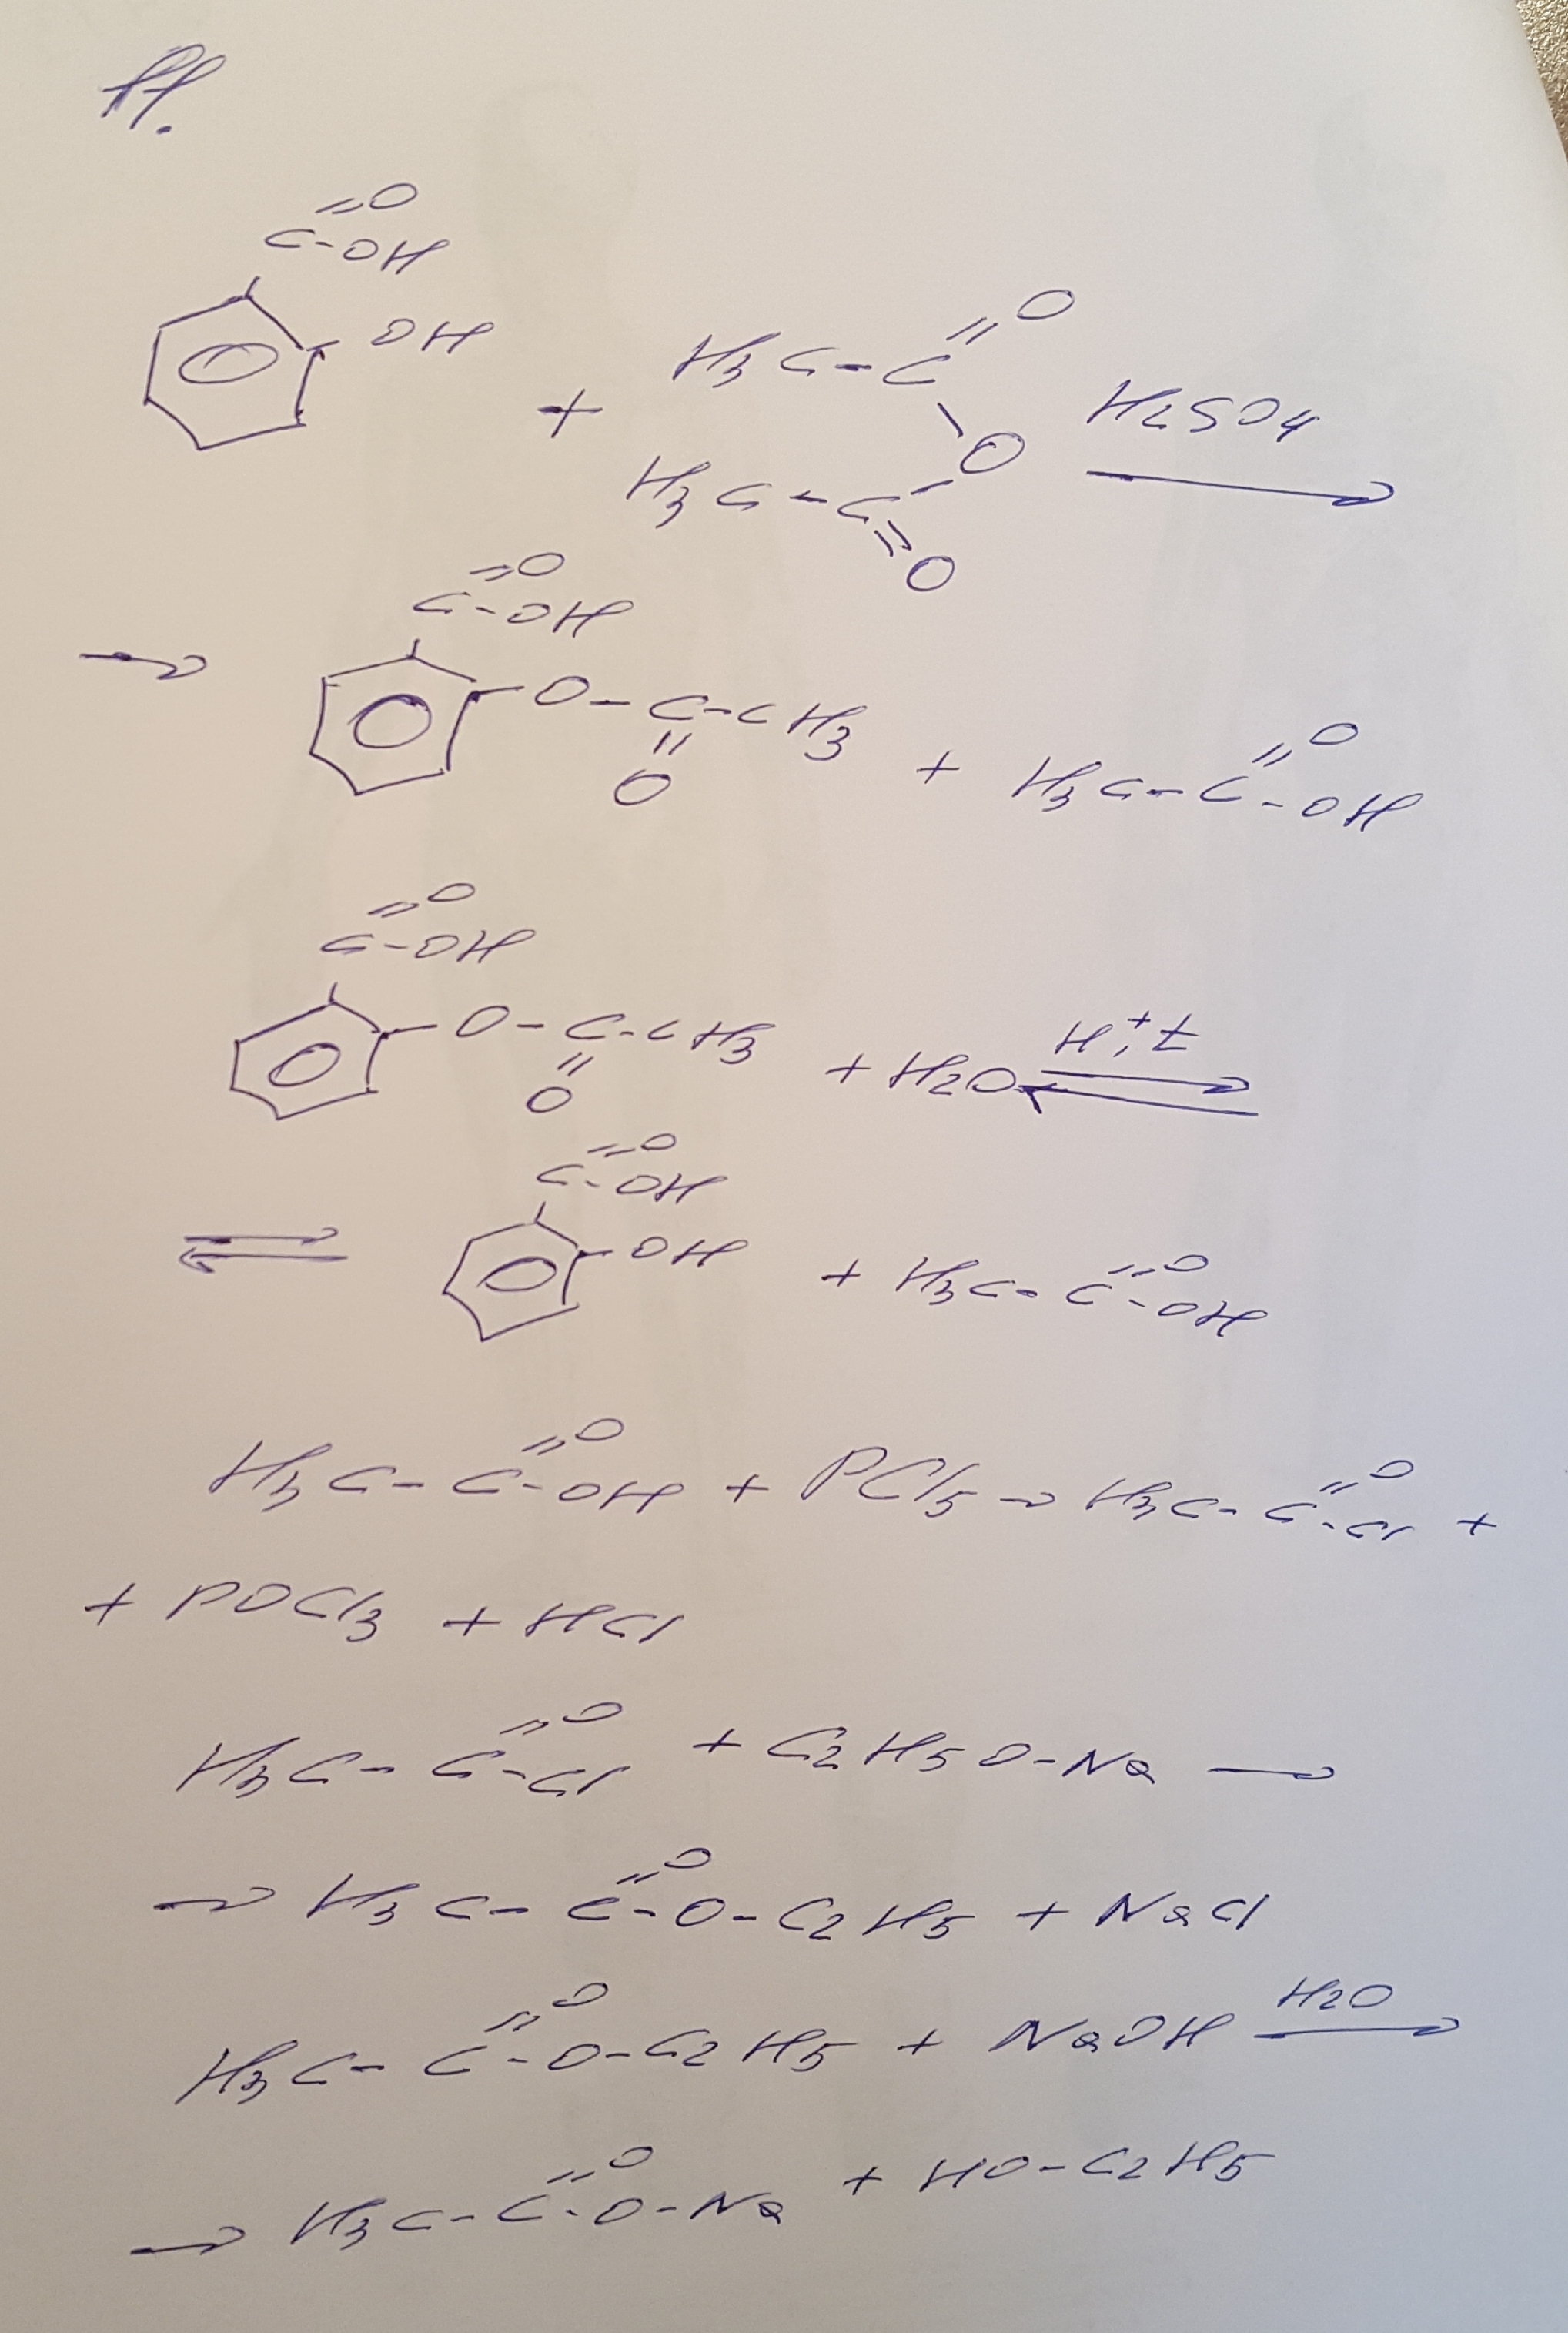 11.
C=O
-OH
OH
+ H3C-C=O
O
H2SO4
H3C-C=O
→
C=O
-OH
O-C-CH3
=
O
+ H3C-C=O
-OH
C=O
-OH
O-C-CH3
=
O
+ H2O ⇄ H+, t
⇄
C=O
-OH
OH
+ H3C-C=O
-OH
H3C-C=O
-OH + PCl5 → H3C-C=O
-Cl +
+ POCl3 + HCl
H3C-C=O
-Cl + C2H5O-Na →
→ H3C-C=O
-O-C2H5 + NaCl
H3C-C=O
-O-C2H5 + NaOH H2O →
→ H3C-C=O
-O-Na + HO-C2H5